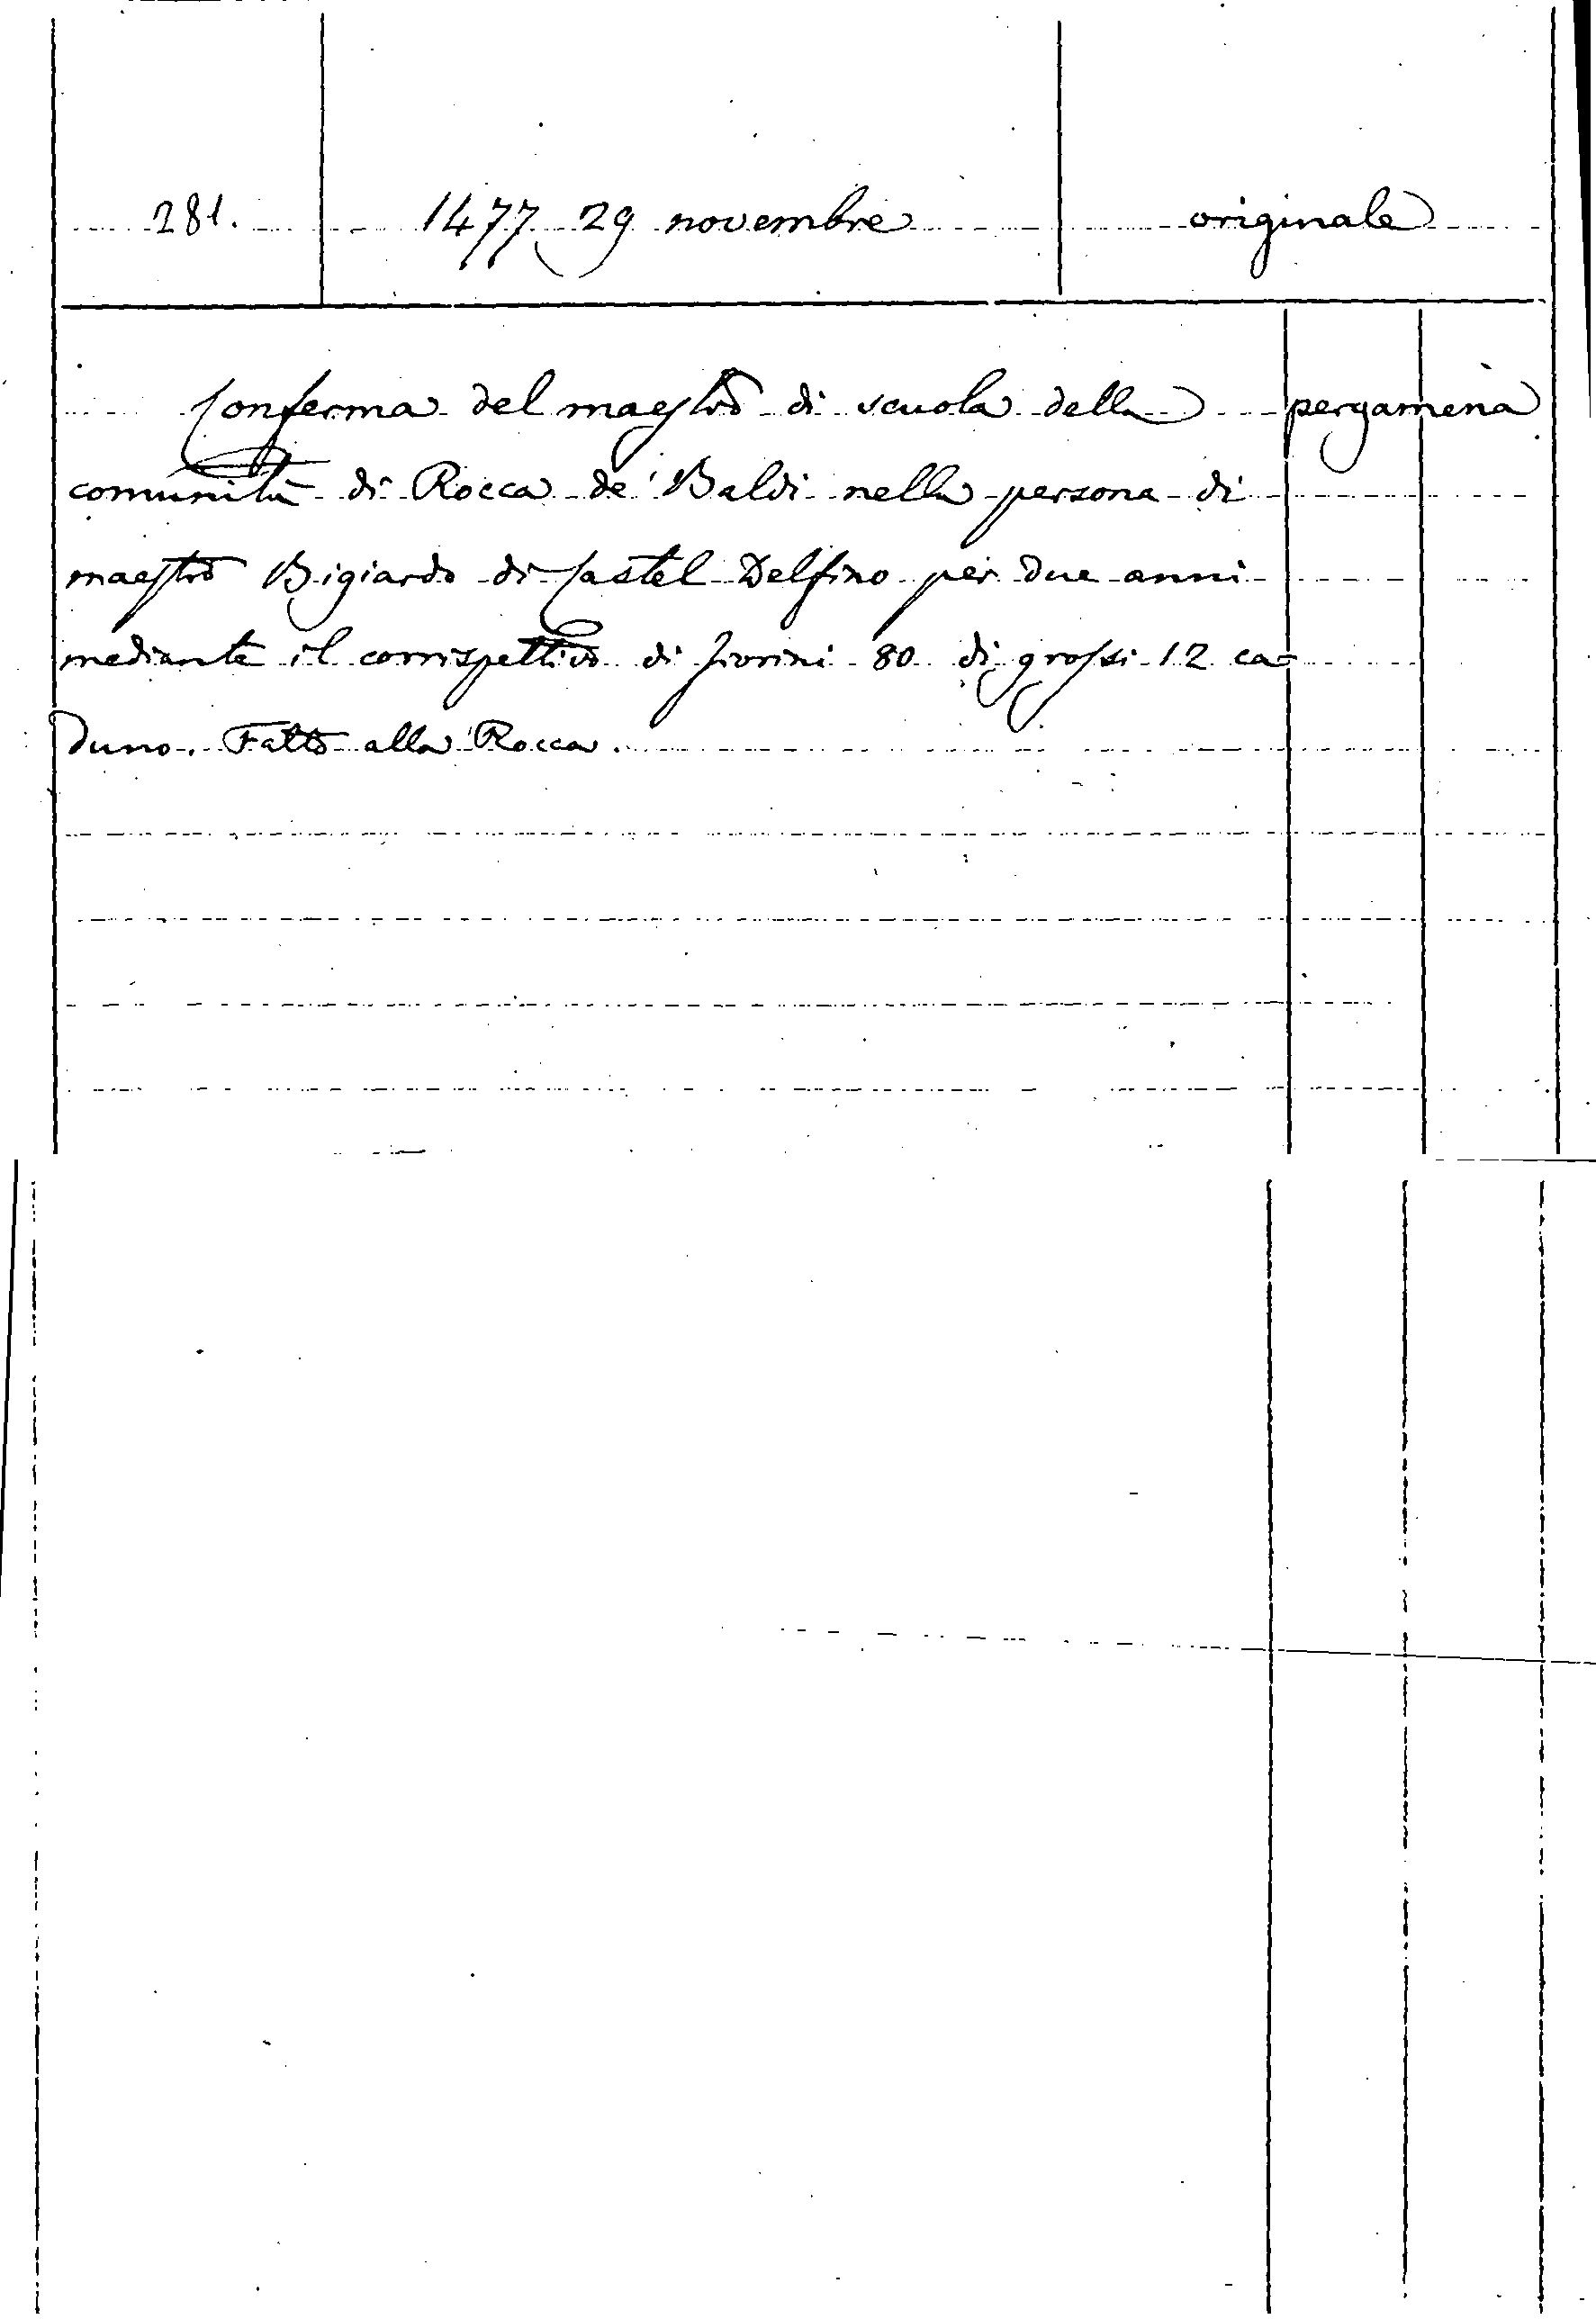 281. 1477 29 novembre originale
Conferma del maestro di scuola della pergamena
comunità di Rocca de' Baldi nella persona di
maestro Bigiardo di Castel Delfino per due anni
mediante il corrispettivo di fiorini 80 di grossi 12 ca-
duno. Fatto alla Rocca.